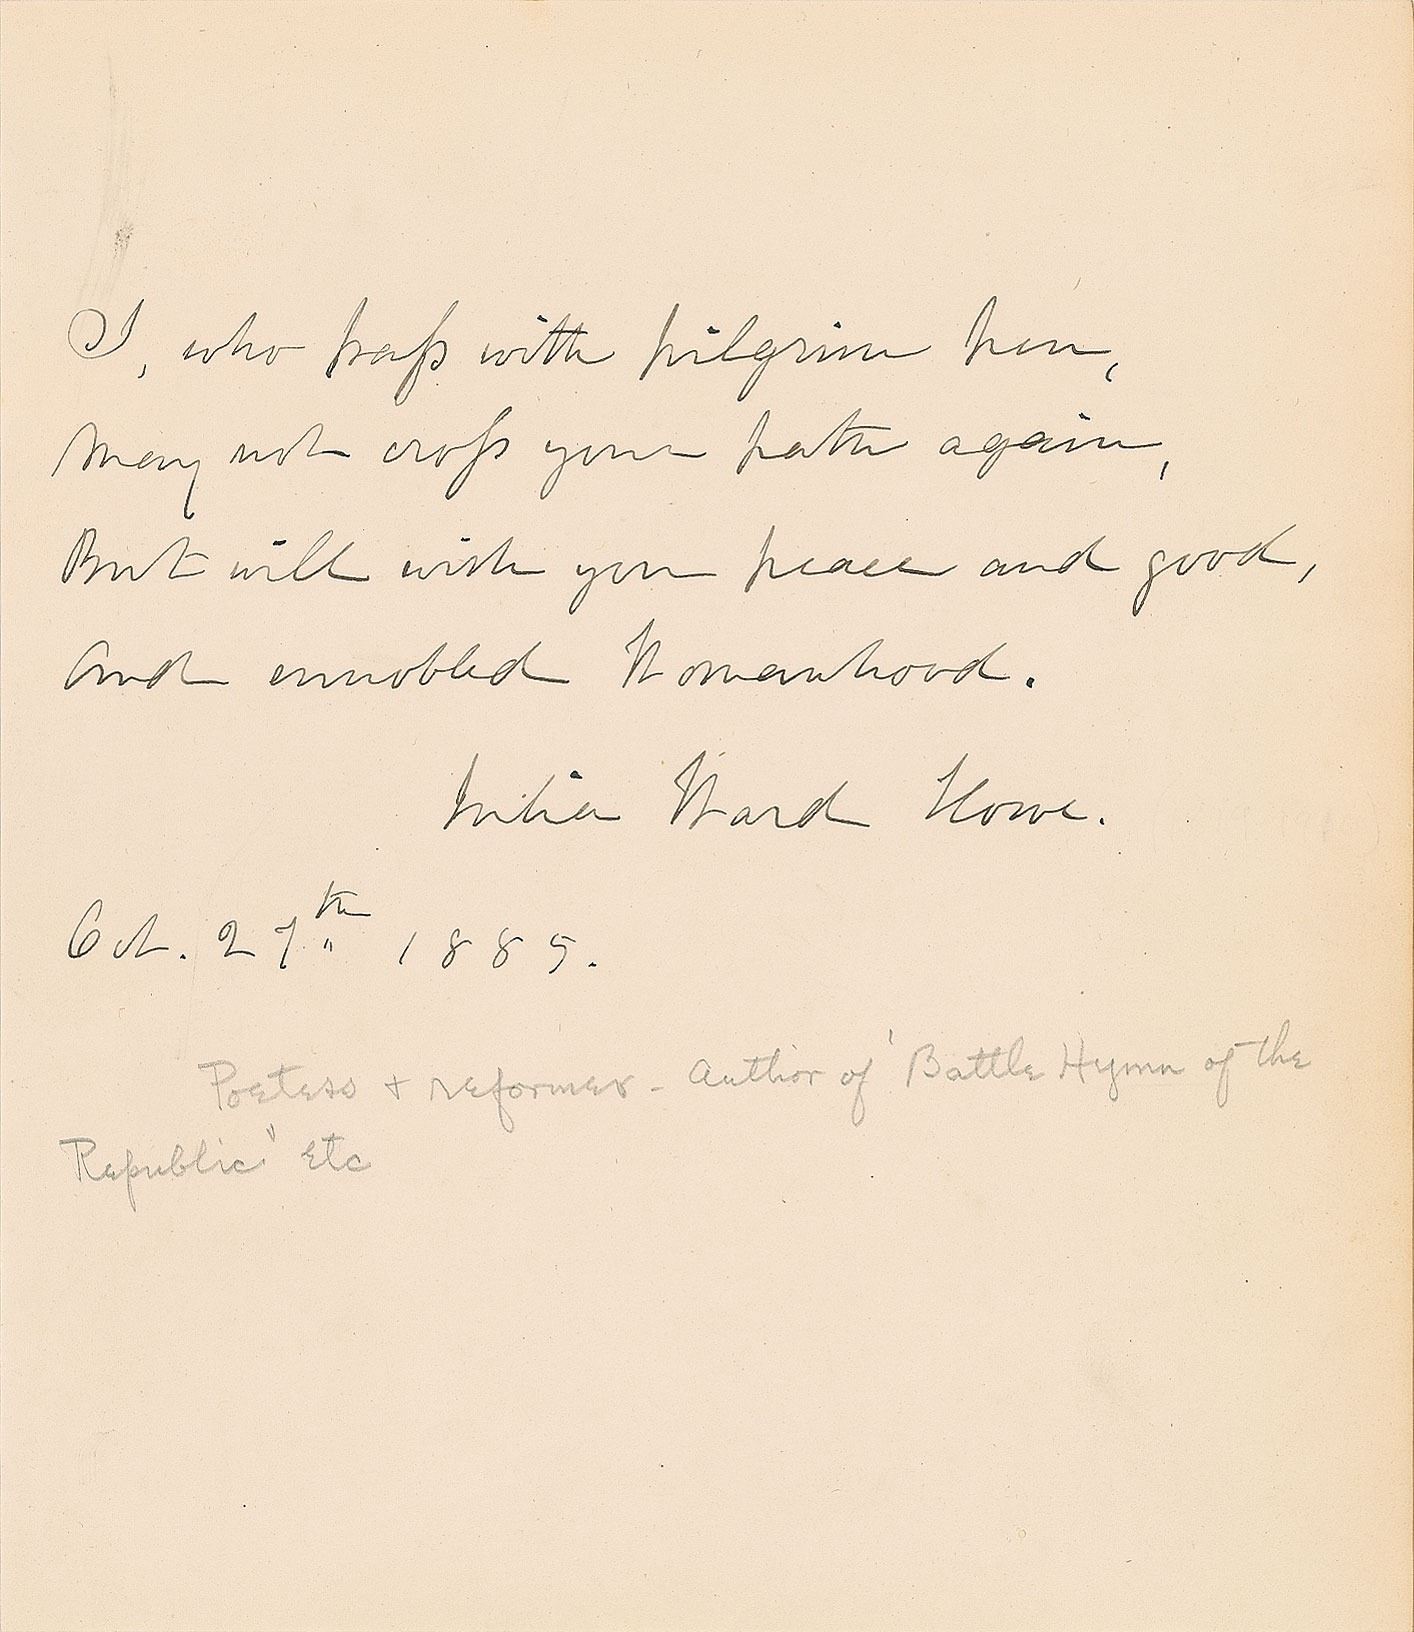 I, who pass with pilgrim pen,
May not cross your path again,
But will wish you peace and good,
And ennobled Womanhood.
Julia Ward Howe.
Oct. 27th 1885.
Poetess + reformer - Author of 'Battle Hymn of the
Republic" Etc